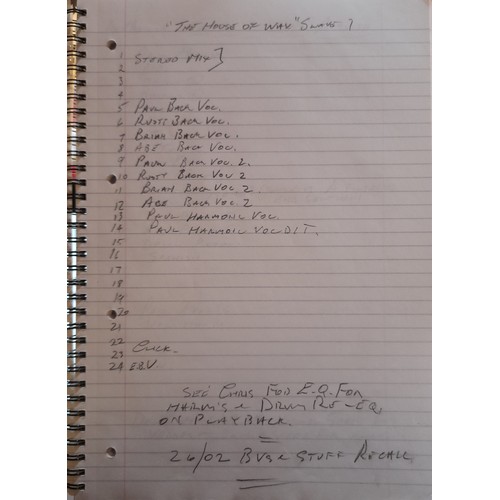 "THE HOUSE OF WAX" SLAVE ?
1 STEREO MIX }
2
3
4
5 PAUL BACK VOC.
6 RUSTY BACK VOC.
7 BRIAN BACK VOC.
8 ABE BACK VOC.
9 PAUL BACK VOC 2.
10 RUSTY BACK VOC 2
11 BRIAN BACK VOC 2
12 ABE BACK VOC 2
13 PAUL HARMONIC VOC.
14 PAUL HARMONIC VOC DIT.
15
16
17
18
19
20
21
22
23 CLICK.
24
SEE CHRIS FOR E.Q. FOR
HARM'S & DRUM RE-EQ
ON PLAYBACK.
26/02 BVS & STUFF RECALL